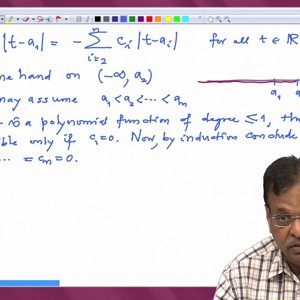 |t-a₁| = - ∑ⁿᵢ₌₂ cᵢ |t-aᵢ| for all t ∈ ℝ
one hand on (-∞, a₂)
may assume a₁<a₂<⋯<aₙ
a₁ a₂
is a polynomial function of degree ≤1,
only if cᵢ=0. Now, by induction conclude
⋯ = cₙ=0.